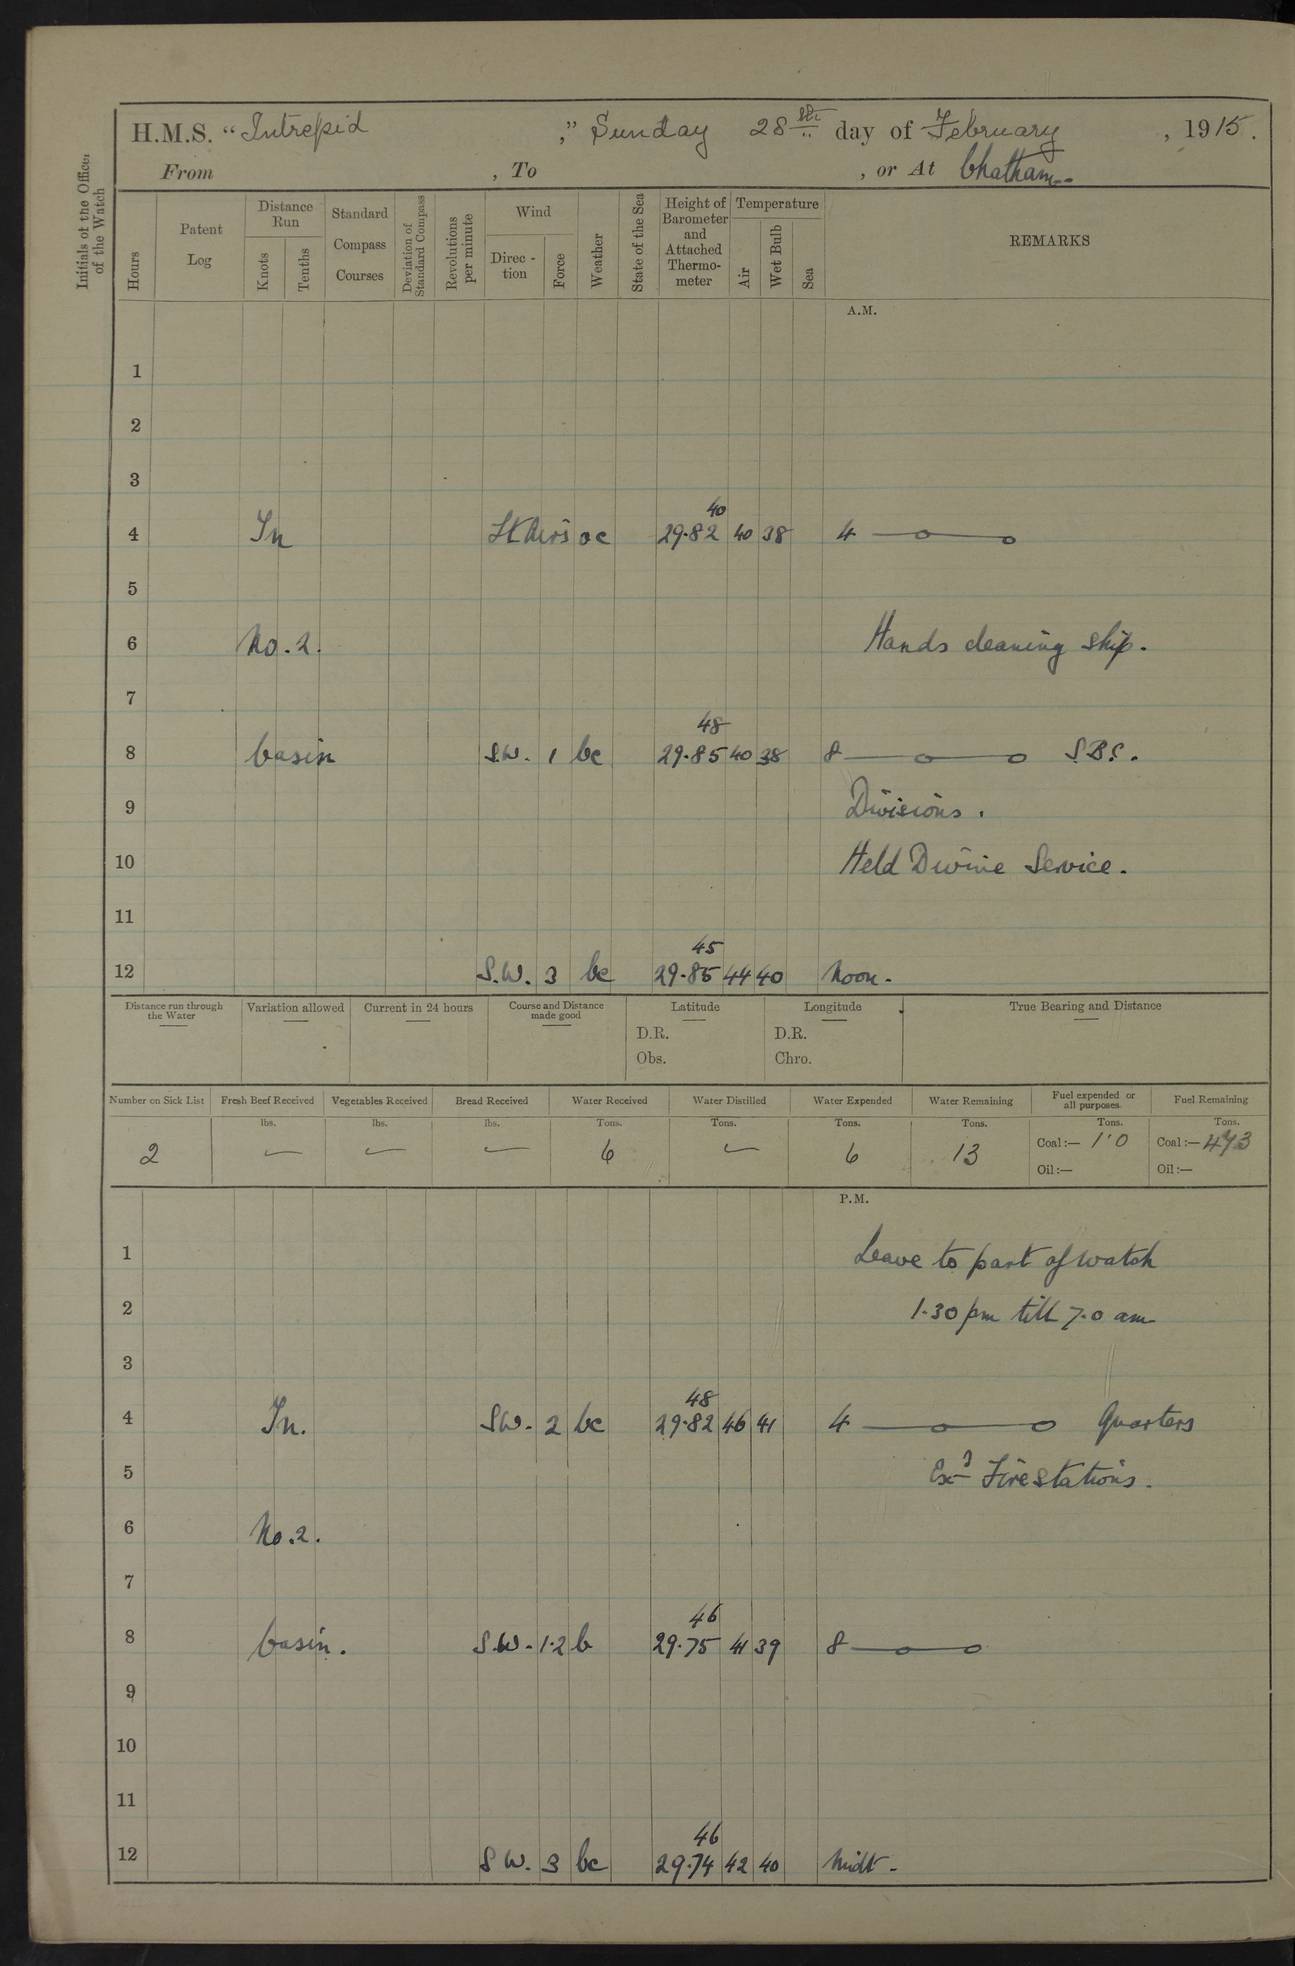 H.M.S. "Intrepid ," Sunday 28th day of February , 1915.
From , To , or At Chatham.-
Initials of the Officer of the Watch
Hours
Patent Log
Distance Run
Knots
Tenths
Standard Compass Courses
Deviation of Standard Compass
Revolutions per minute
Wind
Direc-tion
Force
Weather
State of the Sea
Height of Barometer and Attached Thermo-meter
Temperature
Air
Wet Bulb
Sea
REMARKS
A.M.
1
2
3
40
4 In Lt Airs oc 29.82 40 38 4
5
6 No. 2. Hands cleaning ship.
7
48
8 basin S.W. 1 bc 29.85 40 38 8 S.B.S.
9 Divisions.
10 Held Divine Service.
11
45
12 S.W. 3 bc 29.85 44 40 Noon.
Distance run through the Water
Variation allowed
Current in 24 hours
Course and Distance made good
Latitude
D.R.
Obs.
Longitude
D.R.
Chro.
True Bearing and Distance
Number on Sick List Fresh Beef Received Vegetables Received Bread Received Water Received Water Distilled Water Expended Water Remaining Fuel expended or all purposes. Fuel Remaining
lbs. lbs. lbs. Tons. Tons. Tons. Tons. Tons. Tons.
2 — — — 6 — 6 13 Coal:— 1'0 Coal:— 473
Oil:— Oil:—
P.M.
1 Leave to part of watch
2 1.30 pm till 7.0 am
3
48
4 In. SW. 2 bc 29.82 46 41 4 Quarters
5 Exd Fire stations.
6 No. 2.
7
46
8 basin. S.W. 1.2 b 29.75 41 39 8
9
10
11
46
12 S W. 3 bc 29.74 42 40 Midt.